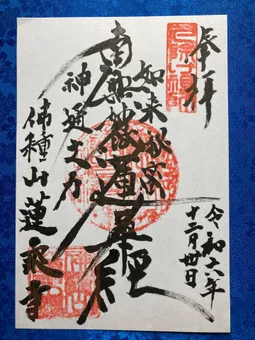 奉拝
如来秘密
南無妙法蓮華経
神通之力
令和六年
十二月
佛種山蓮永寺